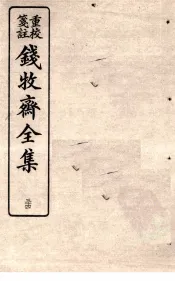 重校
箋註
錢牧齋全集